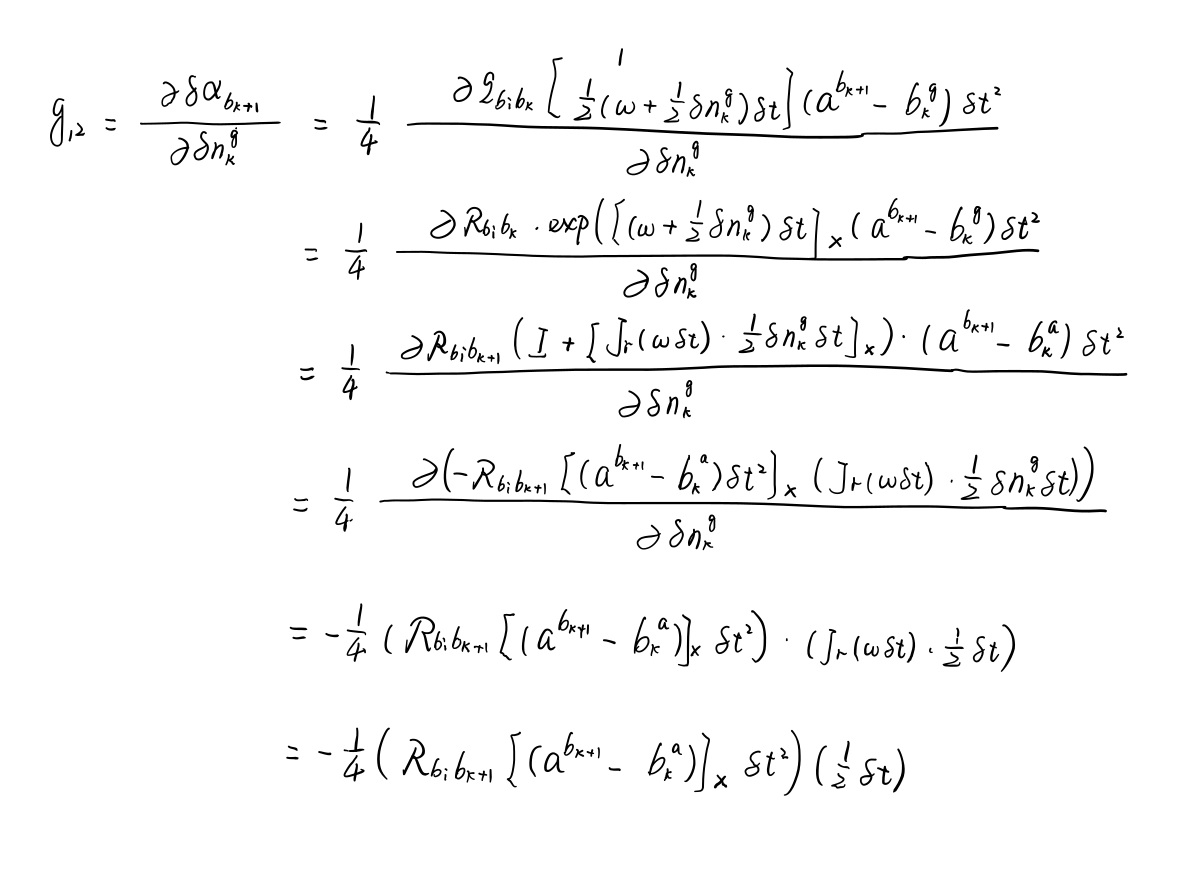 g₁₂ = ∂δα_{b_{k+1}} / ∂δn_k^g = 1/4 ∂q_{b_i b_k} [1; 1/2(ω + 1/2 δn_k^g)δt] (a^{b_{k+1}} - b_k^g) δt² / ∂δn_k^g
= 1/4 ∂R_{b_i b_k} · exp([(ω + 1/2 δn_k^g) δt]_× (a^{b_{k+1}} - b_k^g) δt² / ∂δn_k^g
= 1/4 ∂R_{b_i b_{k+1}} (I + [J_r(ωδt) · 1/2 δn_k^g δt]_×) · (a^{b_{k+1}} - b_k^a) δt² / ∂δn_k^g
= 1/4 ∂(-R_{b_i b_{k+1}} [(a^{b_{k+1}} - b_k^a) δt²]_× (J_r(ωδt) · 1/2 δn_k^g δt)) / ∂δn_k^g
= -1/4 (R_{b_i b_{k+1}} [(a^{b_{k+1}} - b_k^a)]_× δt²) · (J_r(ωδt) · 1/2 δt)
= -1/4 (R_{b_i b_{k+1}} [(a^{b_{k+1}} - b_k^a)]_× δt²) (1/2 δt)